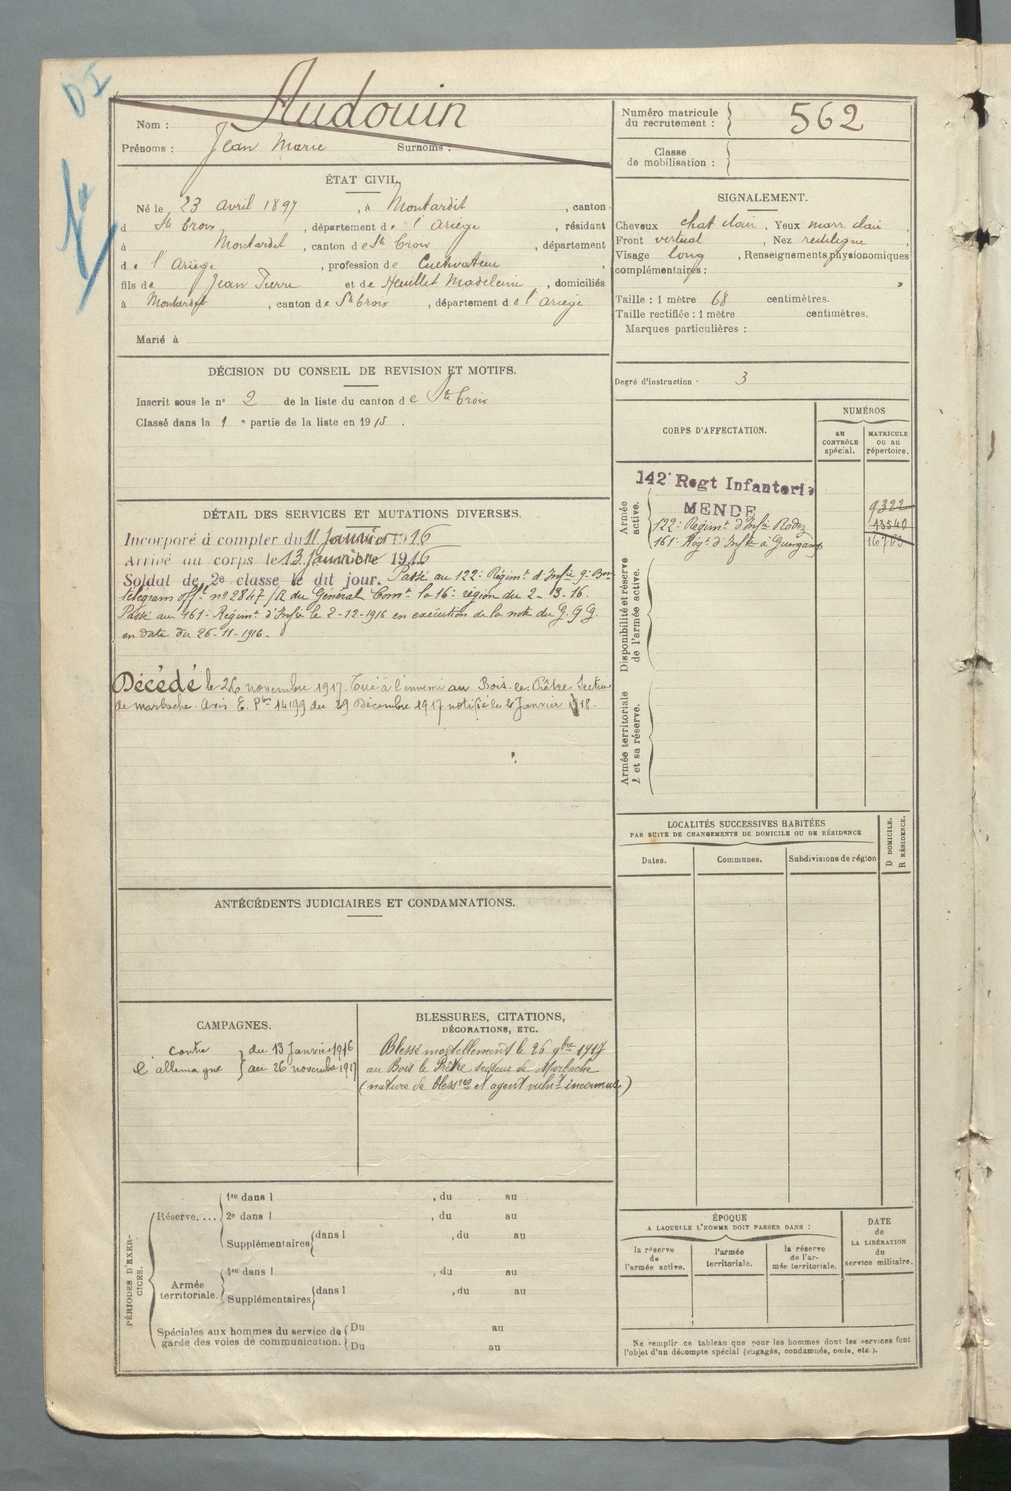 Nom : Audouin
Prénoms : Jean Marie Surnoms :
Numéro matricule du recrutement : 562
Classe de mobilisation :
ÉTAT CIVIL.
Né le 23 avril 1897, à Montardit, canton
d Ste Croix, département de l'Ariège, résidant
à Montardit, canton de Ste Croix, département
de l'Ariège, profession de Cultivateur,
fils de Jean Pierre et de Heuillet Madeleine, domiciliés
à Montardit, canton de Ste Croix, département de l'Ariège
Marié à
SIGNALEMENT.
Cheveux chat clair, Yeux marr clair,
Front vertical, Nez rectiligne,
Visage long, Renseignements physionomiques
complémentaires :
Taille : 1 mètre 68 centimètres.
Taille rectifiée : 1 mètre centimètres.
Marques particulières :
Degré d'instruction. 3
DÉCISION DU CONSEIL DE REVISION ET MOTIFS.
Inscrit sous le n° 2 de la liste du canton de Ste Croix
Classé dans la 1e partie de la liste en 1915.
DÉTAIL DES SERVICES ET MUTATIONS DIVERSES.
Incorporé à compter du 11 Janvier 1916
Arrivé au corps le 13 Janvier 1916
Soldat de 2e classe le dit jour. Passé au 122e Régimt d'Infie
Télégram offel no 2847/R du Général Comt la 16e région du 2-3-16.
Passé au 161e Régimt d'Infie le 2-12-1916 en exécution de la note du G.Q.G.
en date du 26-11-1916.
Décédé le 26 novembre 1917. Tué à l'ennemi au Bois-le-Prêtre Secteur
de marbache Avis E. Pon 14199 du 29 Décembre 1917 notifié le Janvier 1918.
CORPS D'AFFECTATION.
NUMÉROS
AU CONTRÔLE spécial.
MATRICULE OU AU répertoire.
Armée active.
142e Regt Infanterie
MENDE 9322
122e Régimt d'Infie Rodez 13540
161e Régt d'Infie à Guingamp 16763
Disponibilité et réserve de l'armée active.
Armée territoriale et sa réserve.
LOCALITÉS SUCCESSIVES HABITÉES
PAR SUITE DE CHANGEMENTS DE DOMICILE OU DE RÉSIDENCE
Dates. Communes. Subdivisions de région
D DOMICILE.
R RÉSIDENCE.
ANTÉCÉDENTS JUDICIAIRES ET CONDAMNATIONS.
CAMPAGNES.
contre du 13 Janvier 1916
l'allemagne au 26 novembre 1917
BLESSURES, CITATIONS,
DÉCORATIONS, ETC.
Blessé mortellement le 26 9bre 1917
au Bois le Prêtre secteur de Marbache
(nature de blessres et agent vulnt inconnus)
PÉRIODES D'EXERCICES.
Réserve....
1re dans l , du au
2e dans l , du au
Supplémentaires dans l , du au
Armée territoriale.
1re dans l , du au
Supplémentaires dans l , du au
Spéciales aux hommes du service de
garde des voies de communication.
Du au
Du au
ÉPOQUE
A LAQUELLE L'HOMME DOIT PASSER DANS :
la réserve de l'armée active.
l'armée territoriale.
la réserve de l'armée territoriale.
DATE de LA LIBÉRATION du service militaire.
Ne remplir ce tableau que pour les hommes dont les services font
l'objet d'un décompte spécial (engagés, condamnés, omis, etc.).